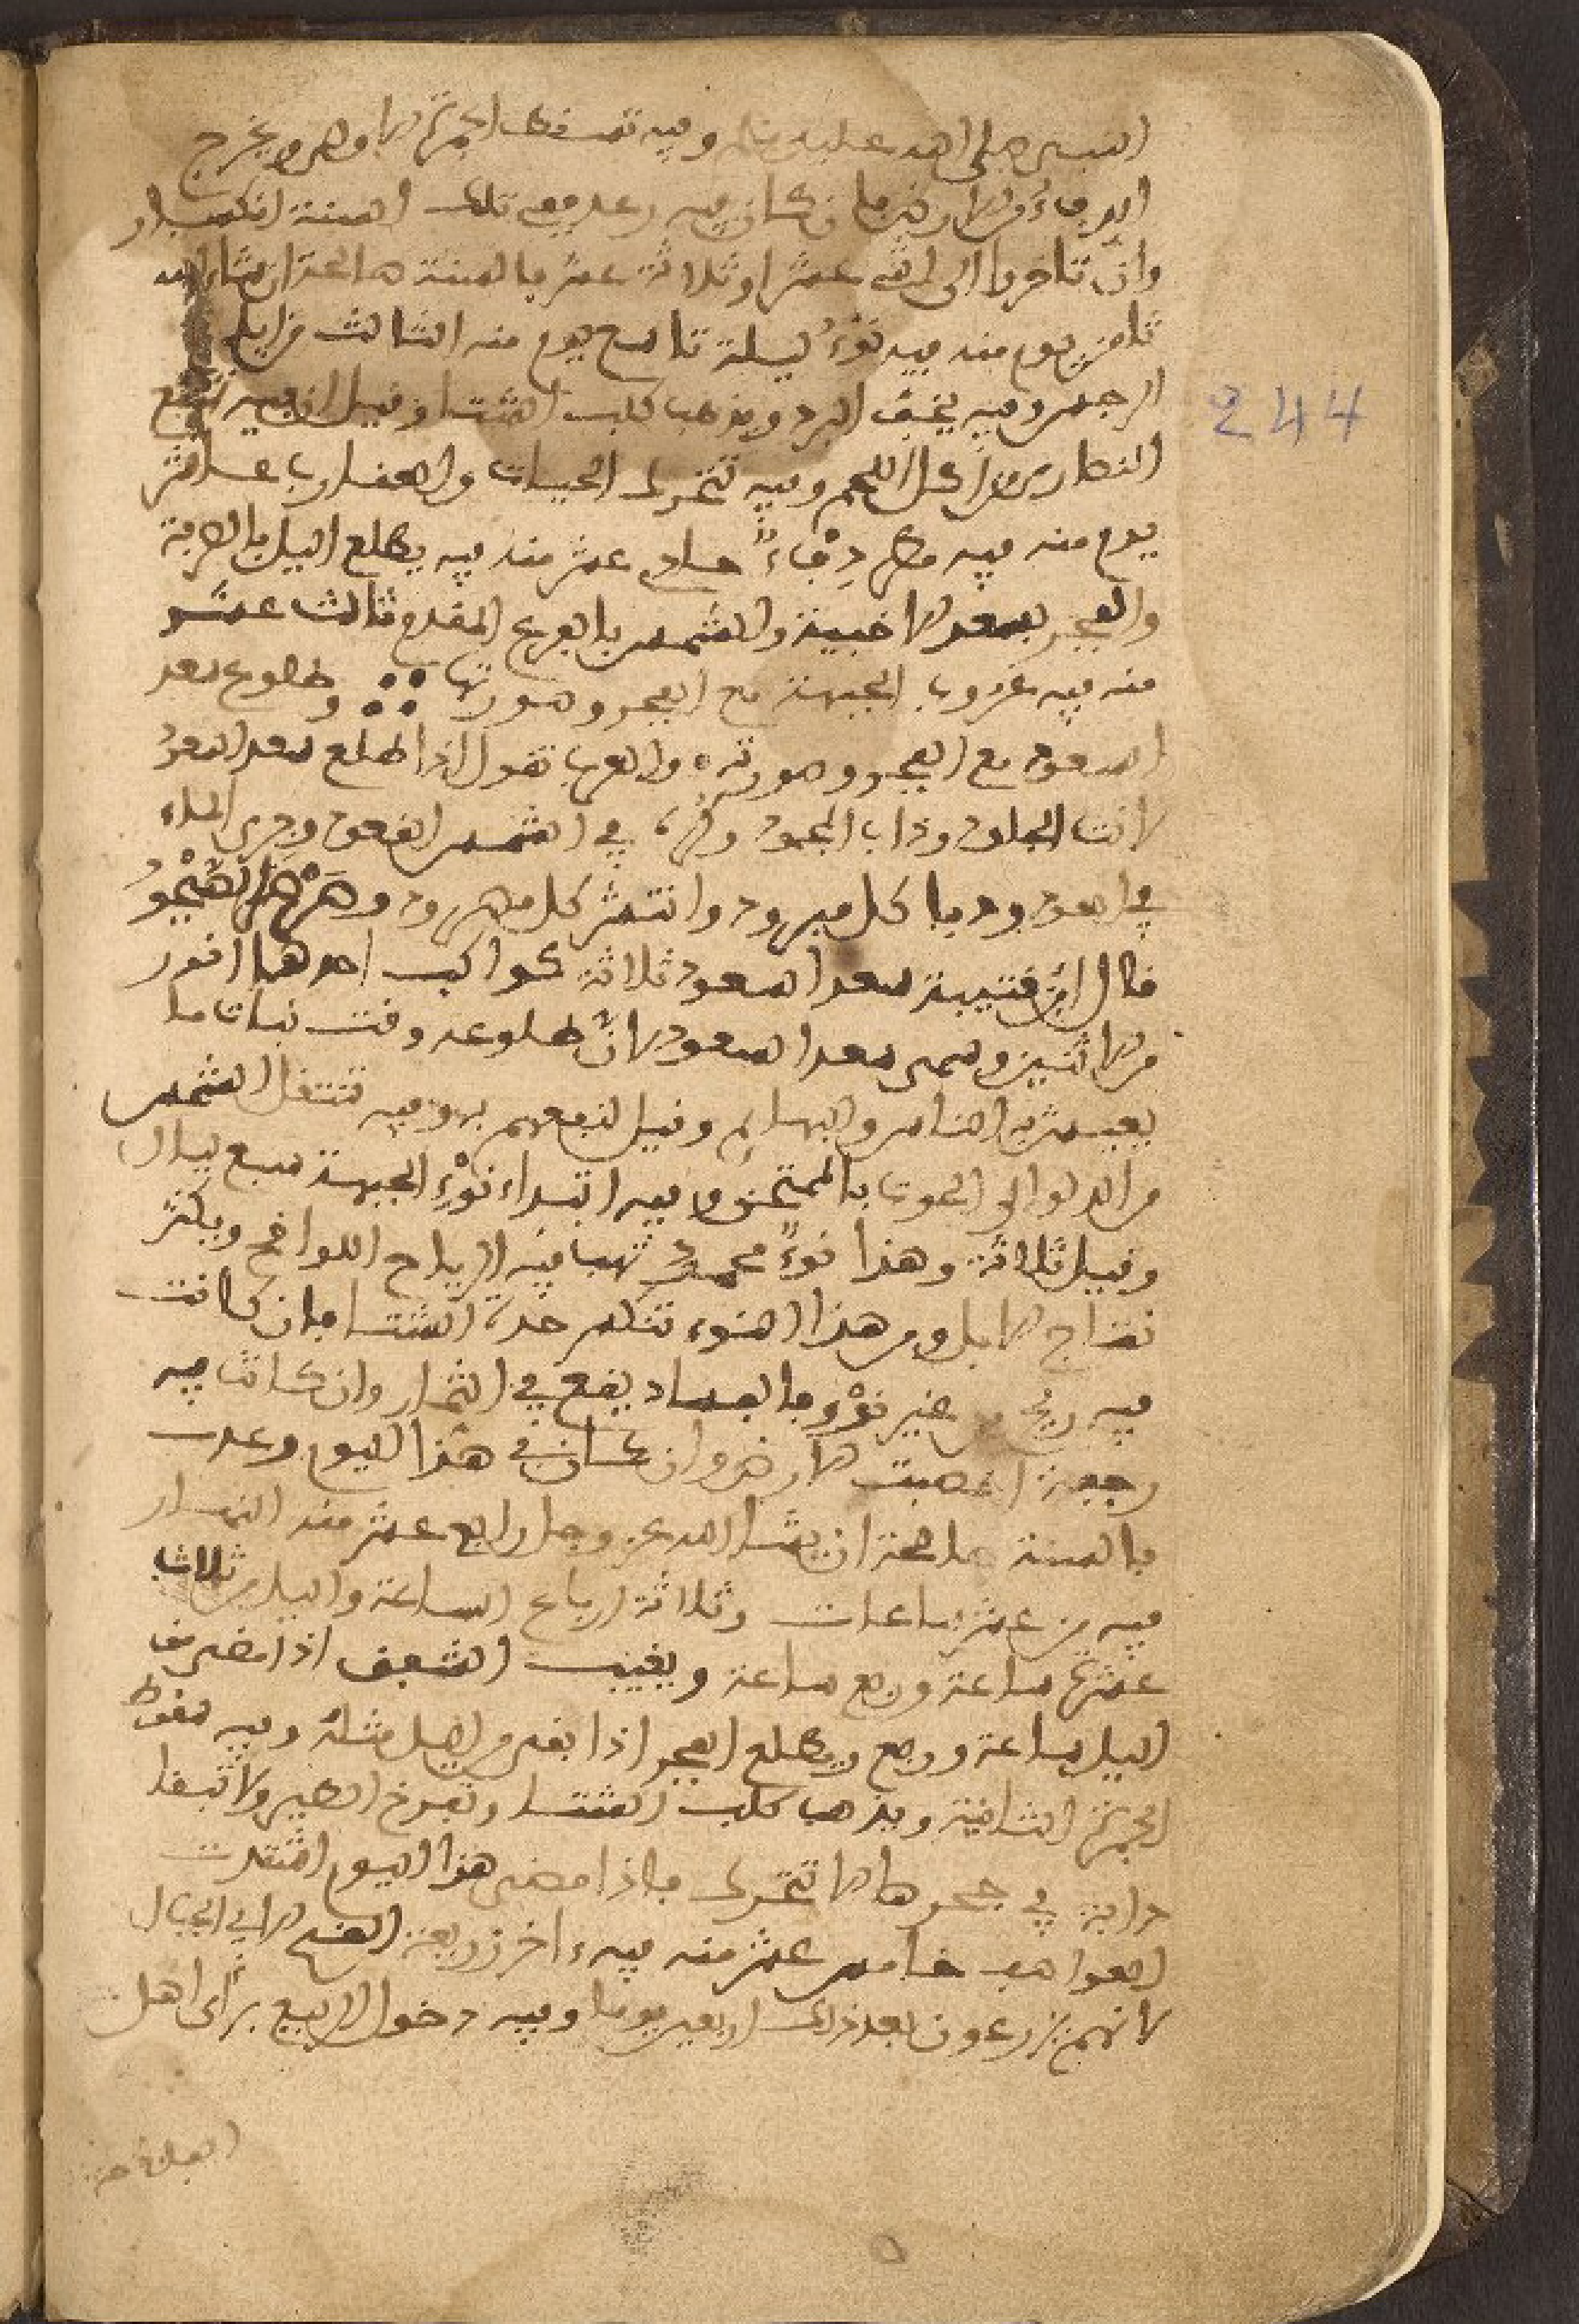 النبي صلى الله عليه وسلم وفيه تسقط الجمرة الاولى ويخرج
الدفاء من الارض فان كان فيه رعد ففي تلك السنة انكسار
وان تاخر الى اثني عشر او ثلاثة عشر فالسنة صالحة ان شاء الله
ثامن يوم منه فيه نوْءُ ليلة تاسع يوم منه الثالث من ايام
العجم وفيه يخف البرد ويذهب كلب الشتا وقيل ان فيه تمتنع
النصارى من اكل اللحم وفيه تتحرك الحيات والعقارب عاشر
يوم منه فيه مطر دِفْاءٌ حادي عشر منه فيه يطلع اليل بالصرفة
والفجر بسعد الاخبية والشمس بالفرع المقدم ثالث عشر
منه فيه غروب الجبهة مع الفجر وصورتها وطلوع سعد
السعود مع الفجر وصورته والعرب تقول اذا طلع سعد السعود
لانت الجلود وذاب الجمود وكره في الشمس القعود وجرى الماء
في العود ودفا كل مبرود وانتشر كل مصرود
قال ابن قتيبة سعد السعود ثلاثة كواكب احدها انور
من الاثنين وسمي سعد السعود لان طلوعه وقت نبات ما
يعيش به الناس والبهايم وقيل لنفعهم به وفيه تنتقل الشمس
من الدلو الى الحوت بالممتحن وفيه ابتداء نوْءِ الجبهة سبع ليال
وقيل ثلاثة وهذا نوءٌ محمودٌ تهب فيه الرياح اللواقح ويكثر
نتاج الابل وفي هذا النوء تنكسر حدة الشتا فان كانت
فيه ريحٌ من غير نوْءٍ فالفساد يقع في الثمار وان كانت فيه
رجعة اخصبت الارض وان كان في هذا اليوم رعدت
فالسنة صالحة ان شا الله عز وجل رابع عشر منه النهار
فيه من عشر ساعات وثلاثة ارباع الساعة واليل من ثلاث
عشرة ساعة وربع ساعة ويغيب الشفق اذا مضى من
اليل ساعة وربع ويطلع الفجر اذا بقي من اليل مثله وفيه سقوط
الجمرة الثانية ويذهب كلب الشتا وتفرخ الطير ولا تبقا
دابة في جحرها الا تتحرك فاذا مضى هذا اليوم اشتدت
العواصف خامس عشر منه فيه ءاخر زريعة القمح الا في الجبال
لانهم يزرعون بعد ذلك اربعين يوما وفيه دخول الربيع برأي اهل